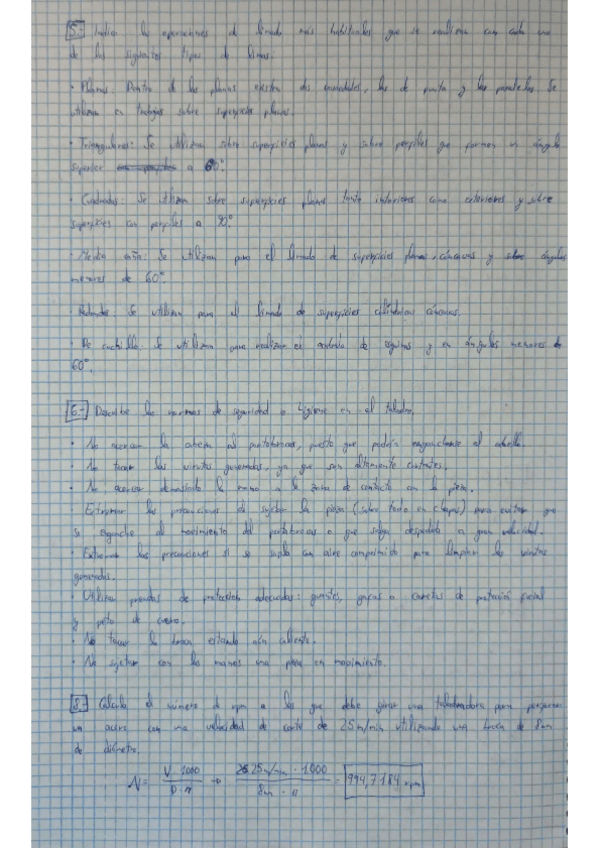 5.- Indica las operaciones de limado más habituales que se realizan con cada uno
de los siguientes tipos de limas.
· Planas: Dentro de las planas existen dos variedades, las de punta y las paralelas. Se
utilizan en trabajos sobre superficies planas.
· Triangulares: Se utilizan sobre superficies planas y sobre perfiles que forman un ángulo
superior a 60°.
· Cuadradas: Se utilizan sobre superficies planas tanto interiores como exteriores y sobre
superficies con perfiles a 90°.
· Media caña: Se utilizan para el limado de superficies planas, cóncavas y sobre ángulos
menores de 60°.
· Redondas: Se utilizan para el limado de superficies cilíndricas cóncavas.
· De cuchillo: Se utilizan para realizar el de y en ángulos menores de
60°.
6.- Describe las normas de seguridad e higiene en el taladro.
· No acercar la cabeza al portabrocas, puesto que podría engancharse el cabello.
· No tocar las virutas generadas, ya que son altamente cortantes.
· No acercar demasiado la mano a la zona de contacto con la pieza.
· Extremar las precauciones de sujetar la pieza (sobre todo en chapas) para evitar que
se enganche al movimiento del portabrocas o que salga despedida a gran velocidad.
· Extremar las precauciones si se sopla con aire comprimido para limpiar las virutas
generadas.
· Utilizar prendas de protección adecuadas: guantes, gafas o caretas de protección facial
y peto de cuero.
· No tocar la broca estando aún caliente.
· No sujetar con las manos una pieza en movimiento.
8.- Calcula el número de rpm a las que debe girar una taladradora para perforar
un acero, con una velocidad de corte de 25 m/min utilizando una broca de 8mm
de diámetro.
N = V · 1000 / D · π → 25 m/min · 1000 / 8mm · π = 994,7184 rpm